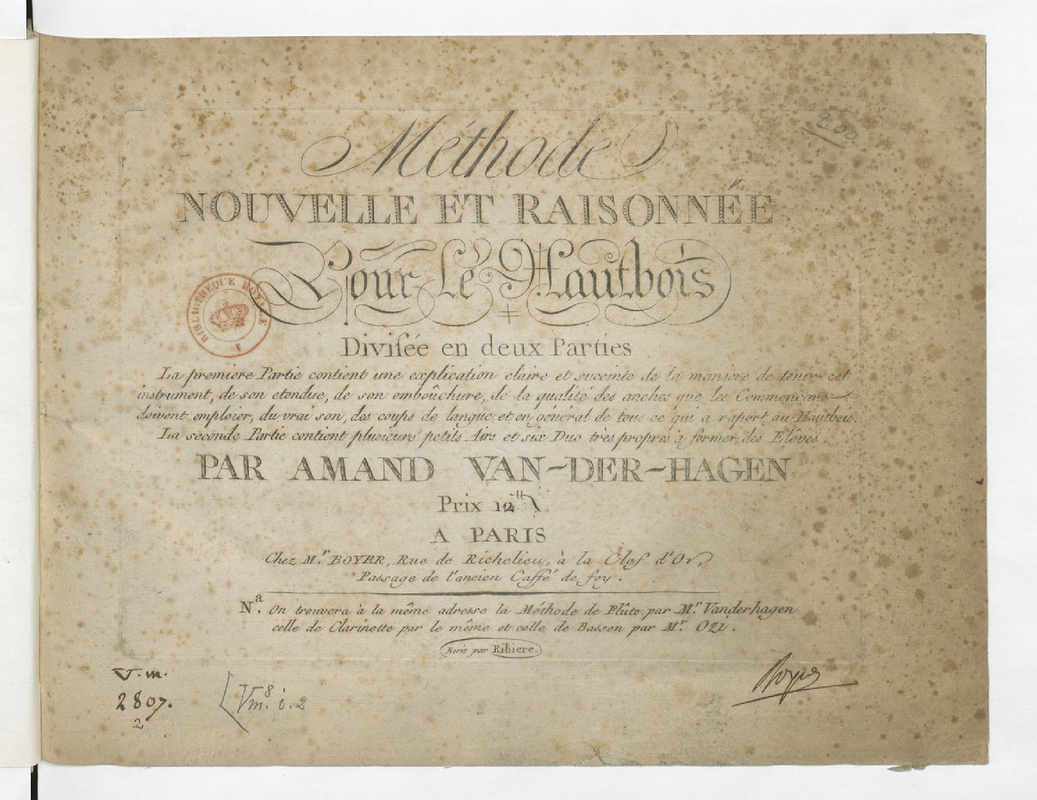 9.00
Méthode
NOUVELLE ET RAISONNÉE
Pour Le Hautbois
BIBLIOTHEQUE ROYALE
Divisée en deux Parties
La premiere Partie contient une explication claire et succinte de la maniere de tenir cet
instrument, de son etendue, de son embouchure, de la qualité des anches que les Commençans
doivent emploier, du vrai son, des coups de langue, et en général de tous ce qui a raport au Hautbois.
La seconde Partie contient plusieurs petits Airs et six Duo très propres a former des Elèves.
PAR AMAND VAN-DER-HAGEN
Prix 12tt
A PARIS
Chez Mr. BOYER, Rue de Richelieu, à la Clef d'Or
Passage de l'ancien Caffé de foy.
Na. On trouvera à la même adresse la Méthode de Flûte par Mr. Vanderhagen
celle de Clarinette par le même et celle de Basson par Mr. Ozi.
Ecrit par Ribiere.
V.m.
2807.
2
[Vm.8 i.2
Boyer